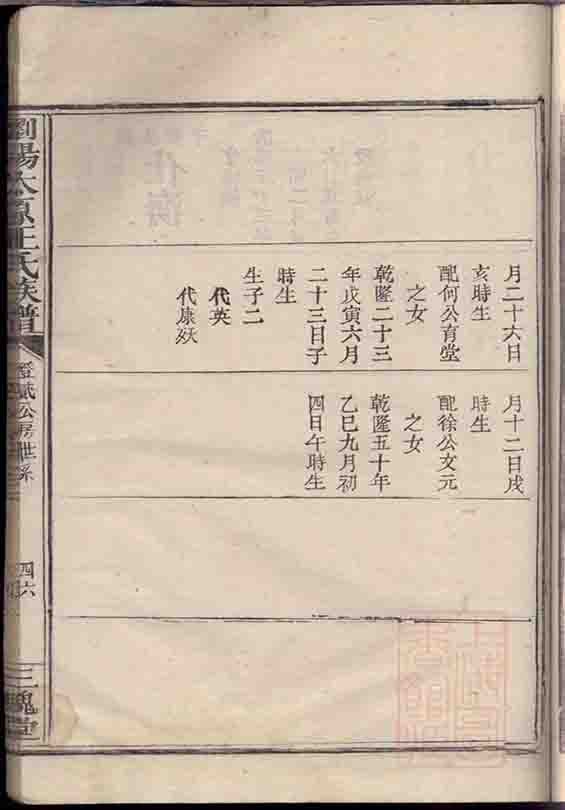 月二十六日
亥時生
配何公育堂
之女
乾隆二十三
年戊寅六月
二十三日子
時生
生子二
代英
代康殀
月十二日戌
時生
配徐公文元
之女
乾隆五十年
乙巳九月初
四日午時生
瀏陽太原王氏族譜
公房世系
四六
三槐堂